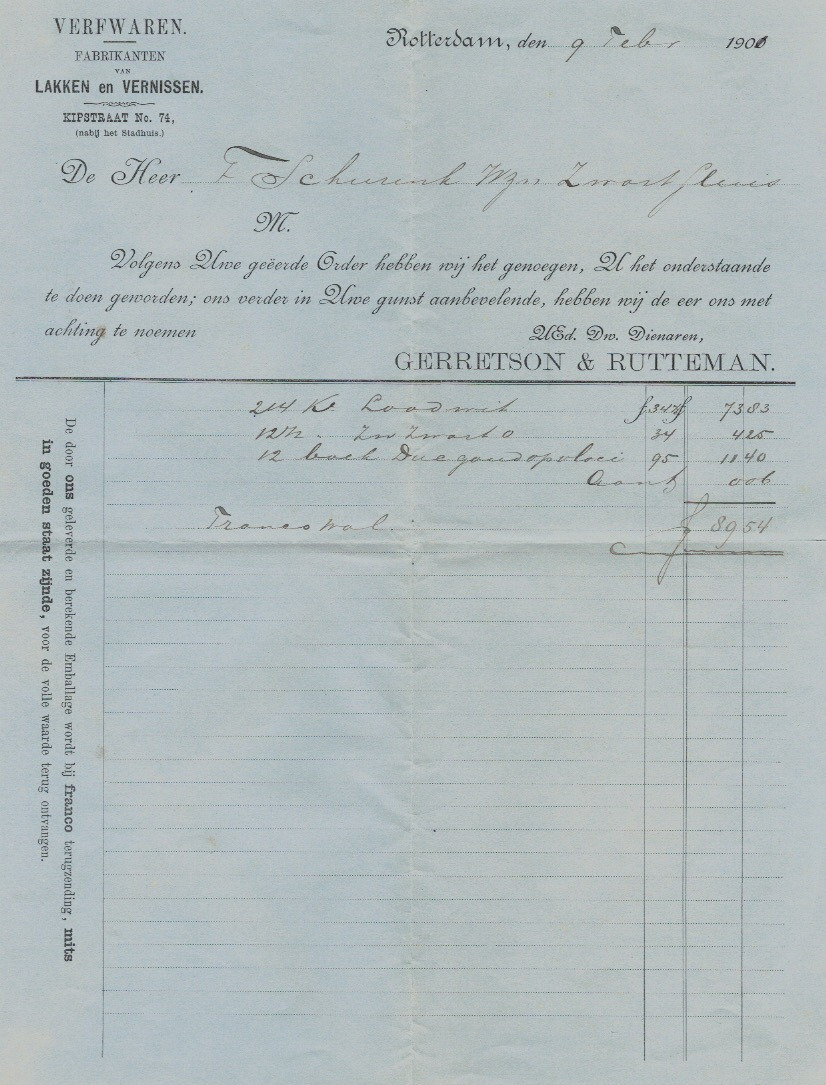 VERFWAREN.
FABRIKANTEN
VAN
LAKKEN en VERNISSEN.
KIPSTRAAT No. 74,
(nabij het Stadhuis.)
Rotterdam, den 9 Febr 1900
De Heer F Schurink Wzn Zwartsluis
M.
Volgens Uwe geëerde Order hebben wij het genoegen, U het onderstaande
te doen geworden; ons verder in Uwe gunst aanbevelende, hebben wij de eer ons met
achting te noemen
UEd. Dw. Dienaren,
GERRETSON & RUTTEMAN.
214 Ko Loodwit f 34½ f 73 83
12½ " Zwart 0 34 4 25
12 boek Duc goud 95 11 40
006
Franco wal. f 89 54
De door ons geleverde en berekende Emballage wordt bij franco terugzending, mits
in goeden staat zijnde, voor de volle waarde terug ontvangen.